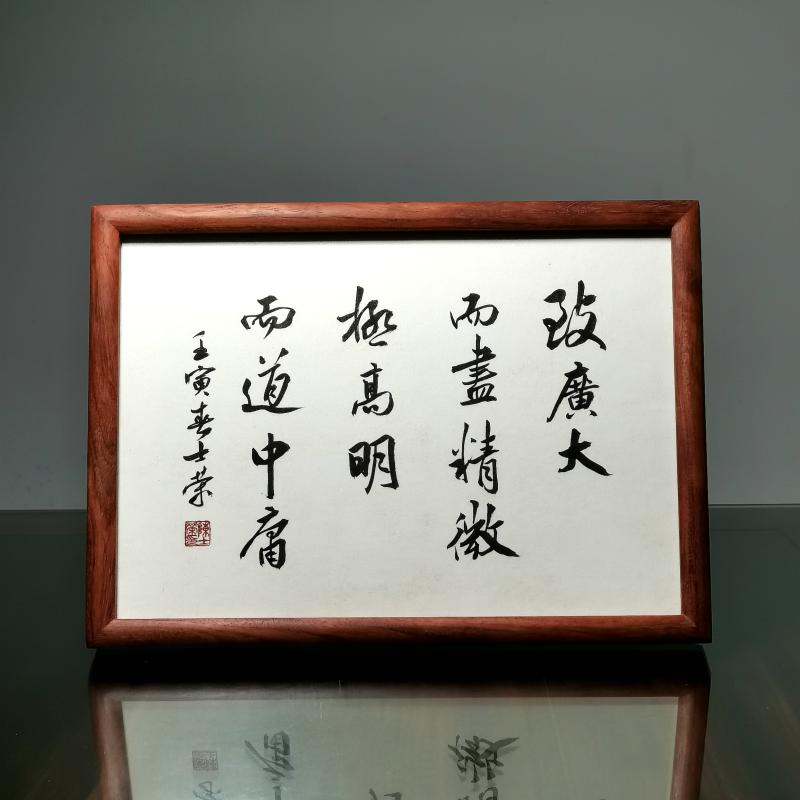 致廣大
而盡精微
極高明
而道中庸
壬寅春士荣